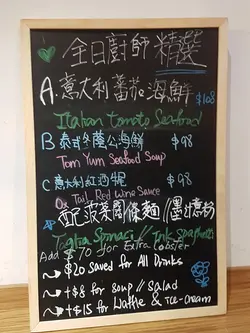 全日廚師精選
A. 意大利蕃茄海鮮 $108
Italian Tomato Seafood
B 泰式冬蔭公海鮮 $98
Tom Yum Seafood Soup
C 意大利紅酒 $98
Ox Tail Red Wine Sauce
配菠菜闊條麵//墨汁意粉
Spinaci // Ink Spaghetti
Add $70 for Extra Lobster
→ $20 saved for All Drinks
→ +$8 for Soup / Salad
→ +$15 for Waffle & Ice-Cream